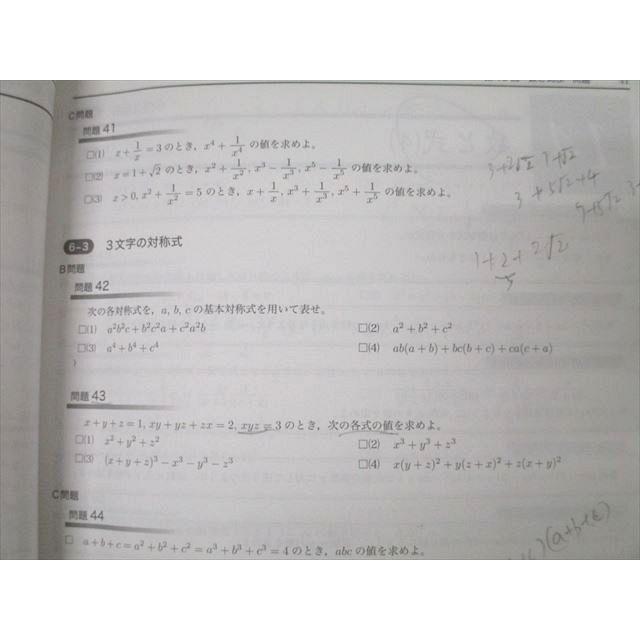 C問題
問題 41
□(1) x+1/x=3 のとき, x⁴+1/x⁴ の値を求めよ。
□(2) x=1+√2 のとき, x²+1/x², x³−1/x³, x⁵−1/x⁵ の値を求めよ。
□(3) x>0, x²+1/x²=5 のとき, x+1/x, x³+1/x³, x⁵+1/x⁵ の値を求めよ。
3+2√2
3+5√2+4
1+2+2√2
6-3 3文字の対称式
B問題
問題 42
次の各対称式を, a, b, c の基本対称式を用いて表せ。
□(1) a²b²c+b²c²a+c²a²b
□(2) a²+b²+c²
□(3) a⁴+b⁴+c⁴
□(4) ab(a+b)+bc(b+c)+ca(c+a)
問題 43
x+y+z=1, xy+yz+zx=2, xyz=3 のとき, 次の各式の値を求めよ。
□(1) x²+y²+z²
□(2) x³+y³+z³
□(3) (x+y+z)³−x³−y³−z³
□(4) x(y+z)²+y(z+x)²+z(x+y)²
C問題
問題 44
□ a+b+c=a²+b²+c²=a³+b³+c³=4 のとき, abc の値を求めよ。
(a+b+c)